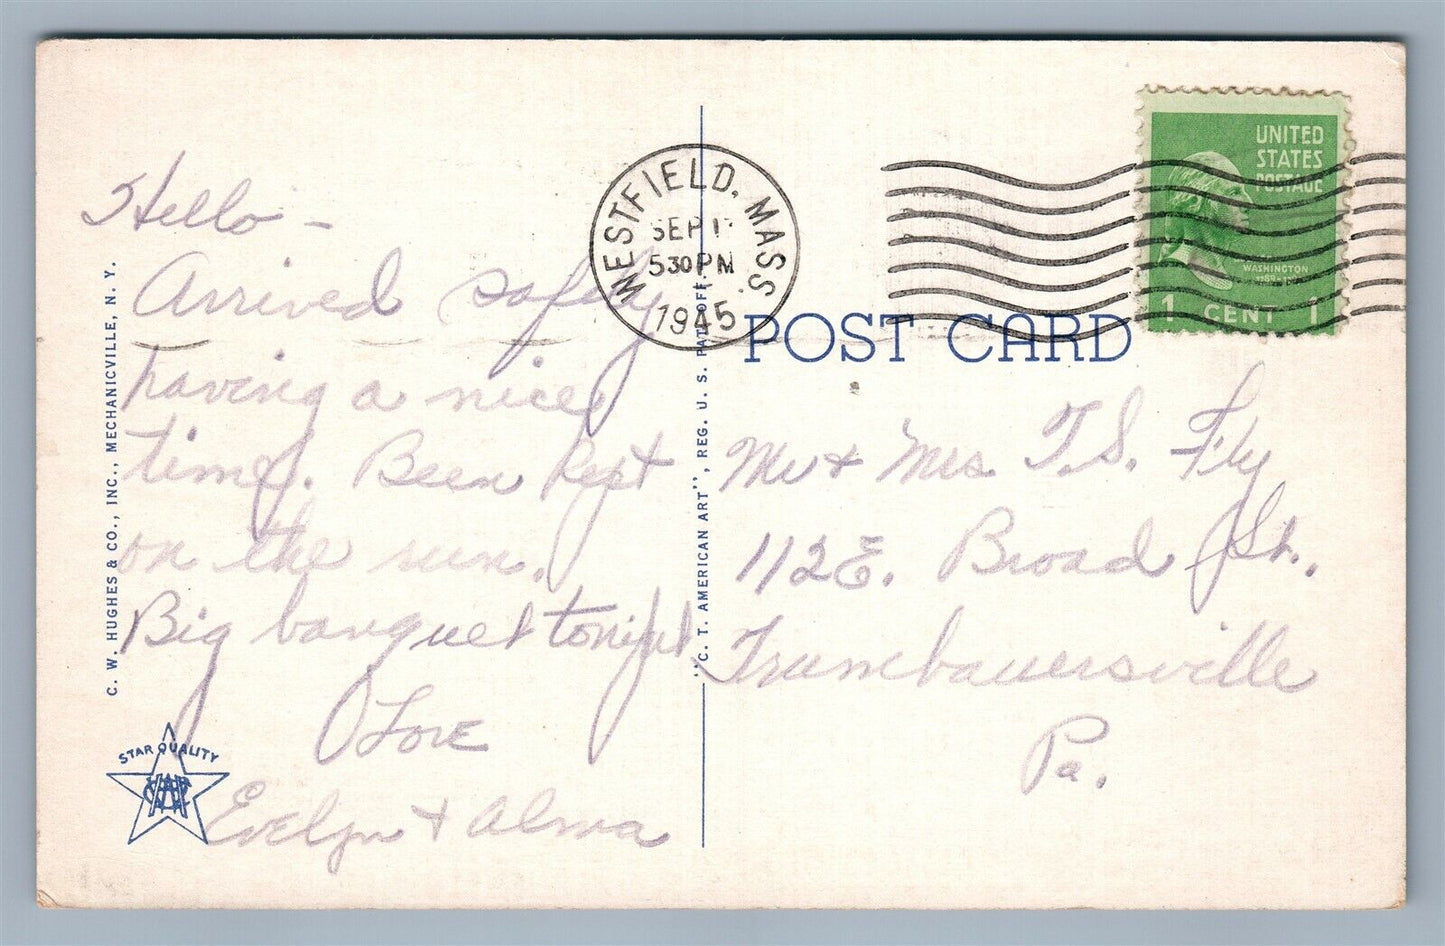 Hello -
Arrived safely
having a nice
time. Been Kept
on the run.
Big banquet tonight
Love
Evelyn + Alma
C. W. HUGHES & CO., INC., MECHANICVILLE, N. Y.
STAR QUALITY
"C. T. AMERICAN ART", REG. U. S. PAT. OFF.
WESTFIELD, MASS.
SEP 1
5 30 PM
1945
POST CARD
UNITED
STATES
POSTAGE
WASHINGTON
1 CENT 1
Mr + Mrs. T. S. Fly
112 E. Broad St.
Trumbauersville
Pa.